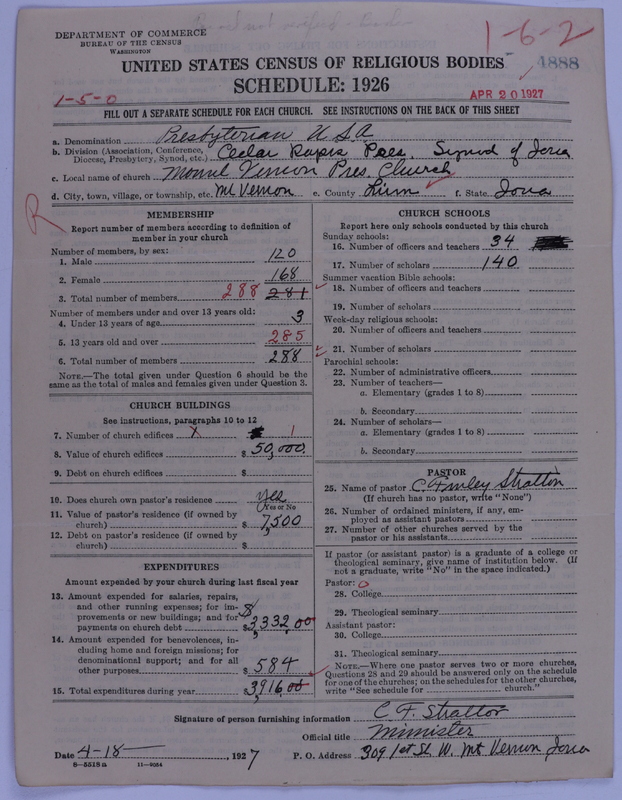 DEPARTMENT OF COMMERCE
BUREAU OF THE CENSUS
WASHINGTON
1-6-2
4888
UNITED STATES CENSUS OF RELIGIOUS BODIES
SCHEDULE: 1926
1-5-0
APR 20 1927
FILL OUT A SEPARATE SCHEDULE FOR EACH CHURCH. SEE INSTRUCTIONS ON THE BACK OF THIS SHEET
a. Denomination Presbyterian U.S.A
b. Division (Association, Conference, Diocese, Presbytery, Synod, etc.) Cedar Rapids Pres. Synod of Iowa
c. Local name of church Mount Vernon Pres. Church
d. City, town, village, or township, etc. Mt Vernon e. County Linn f. State Iowa
R
MEMBERSHIP
Report number of members according to definition of
member in your church
Number of members, by sex:
1. Male 120
2. Female 168
3. Total number of members 288 281
Number of members under and over 13 years old:
4. Under 13 years of age 3
5. 13 years old and over 285
6. Total number of members 288
NOTE.—The total given under Question 6 should be the
same as the total of males and females given under Question 3.
CHURCH BUILDINGS
See instructions, paragraphs 10 to 12
7. Number of church edifices X 1
8. Value of church edifices $ 50,000.
9. Debt on church edifices $
10. Does church own pastor's residence yes
(Yes or No)
11. Value of pastor's residence (if owned by
church) $ 7,500
12. Debt on pastor's residence (if owned by
church) $
EXPENDITURES
Amount expended by your church during last fiscal year
13. Amount expended for salaries, repairs,
and other running expenses; for im-
provements or new buildings; and for
payments on church debt $ 3,332,00
14. Amount expended for benevolences, in-
cluding home and foreign missions; for
denominational support; and for all
other purposes $ 584
15. Total expenditures during year $ 3,916,00
CHURCH SCHOOLS
Report here only schools conducted by this church
Sunday schools:
16. Number of officers and teachers 34
17. Number of scholars 140
Summer vacation Bible schools:
18. Number of officers and teachers
19. Number of scholars
Week-day religious schools:
20. Number of officers and teachers
21. Number of scholars
Parochial schools:
22. Number of administrative officers
23. Number of teachers—
a. Elementary (grades 1 to 8)
b. Secondary
24. Number of scholars—
a. Elementary (grades 1 to 8)
b. Secondary
PASTOR
25. Name of pastor C. Finley Stratton
(If church has no pastor, write "None")
26. Number of ordained ministers, if any, em-
ployed as assistant pastors
27. Number of other churches served by the
pastor or his assistants
If pastor (or assistant pastor) is a graduate of a college or
theological seminary, give name of institution below. (If
not a graduate, write "No" in the space indicated.)
Pastor: 0
28. College
29. Theological seminary
Assistant pastor:
30. College
31. Theological seminary
NOTE.—Where one pastor serves two or more churches,
Questions 28 and 29 should be answered only on the schedule
for one of the churches; on the schedules for the other churches,
write "See schedule for church."
Signature of person furnishing information C F. Stratton
Official title Minister
Date 4-18 , 1927 P. O. Address 309 1st St. W. Mt Vernon Iowa
8-5518a 11-9084